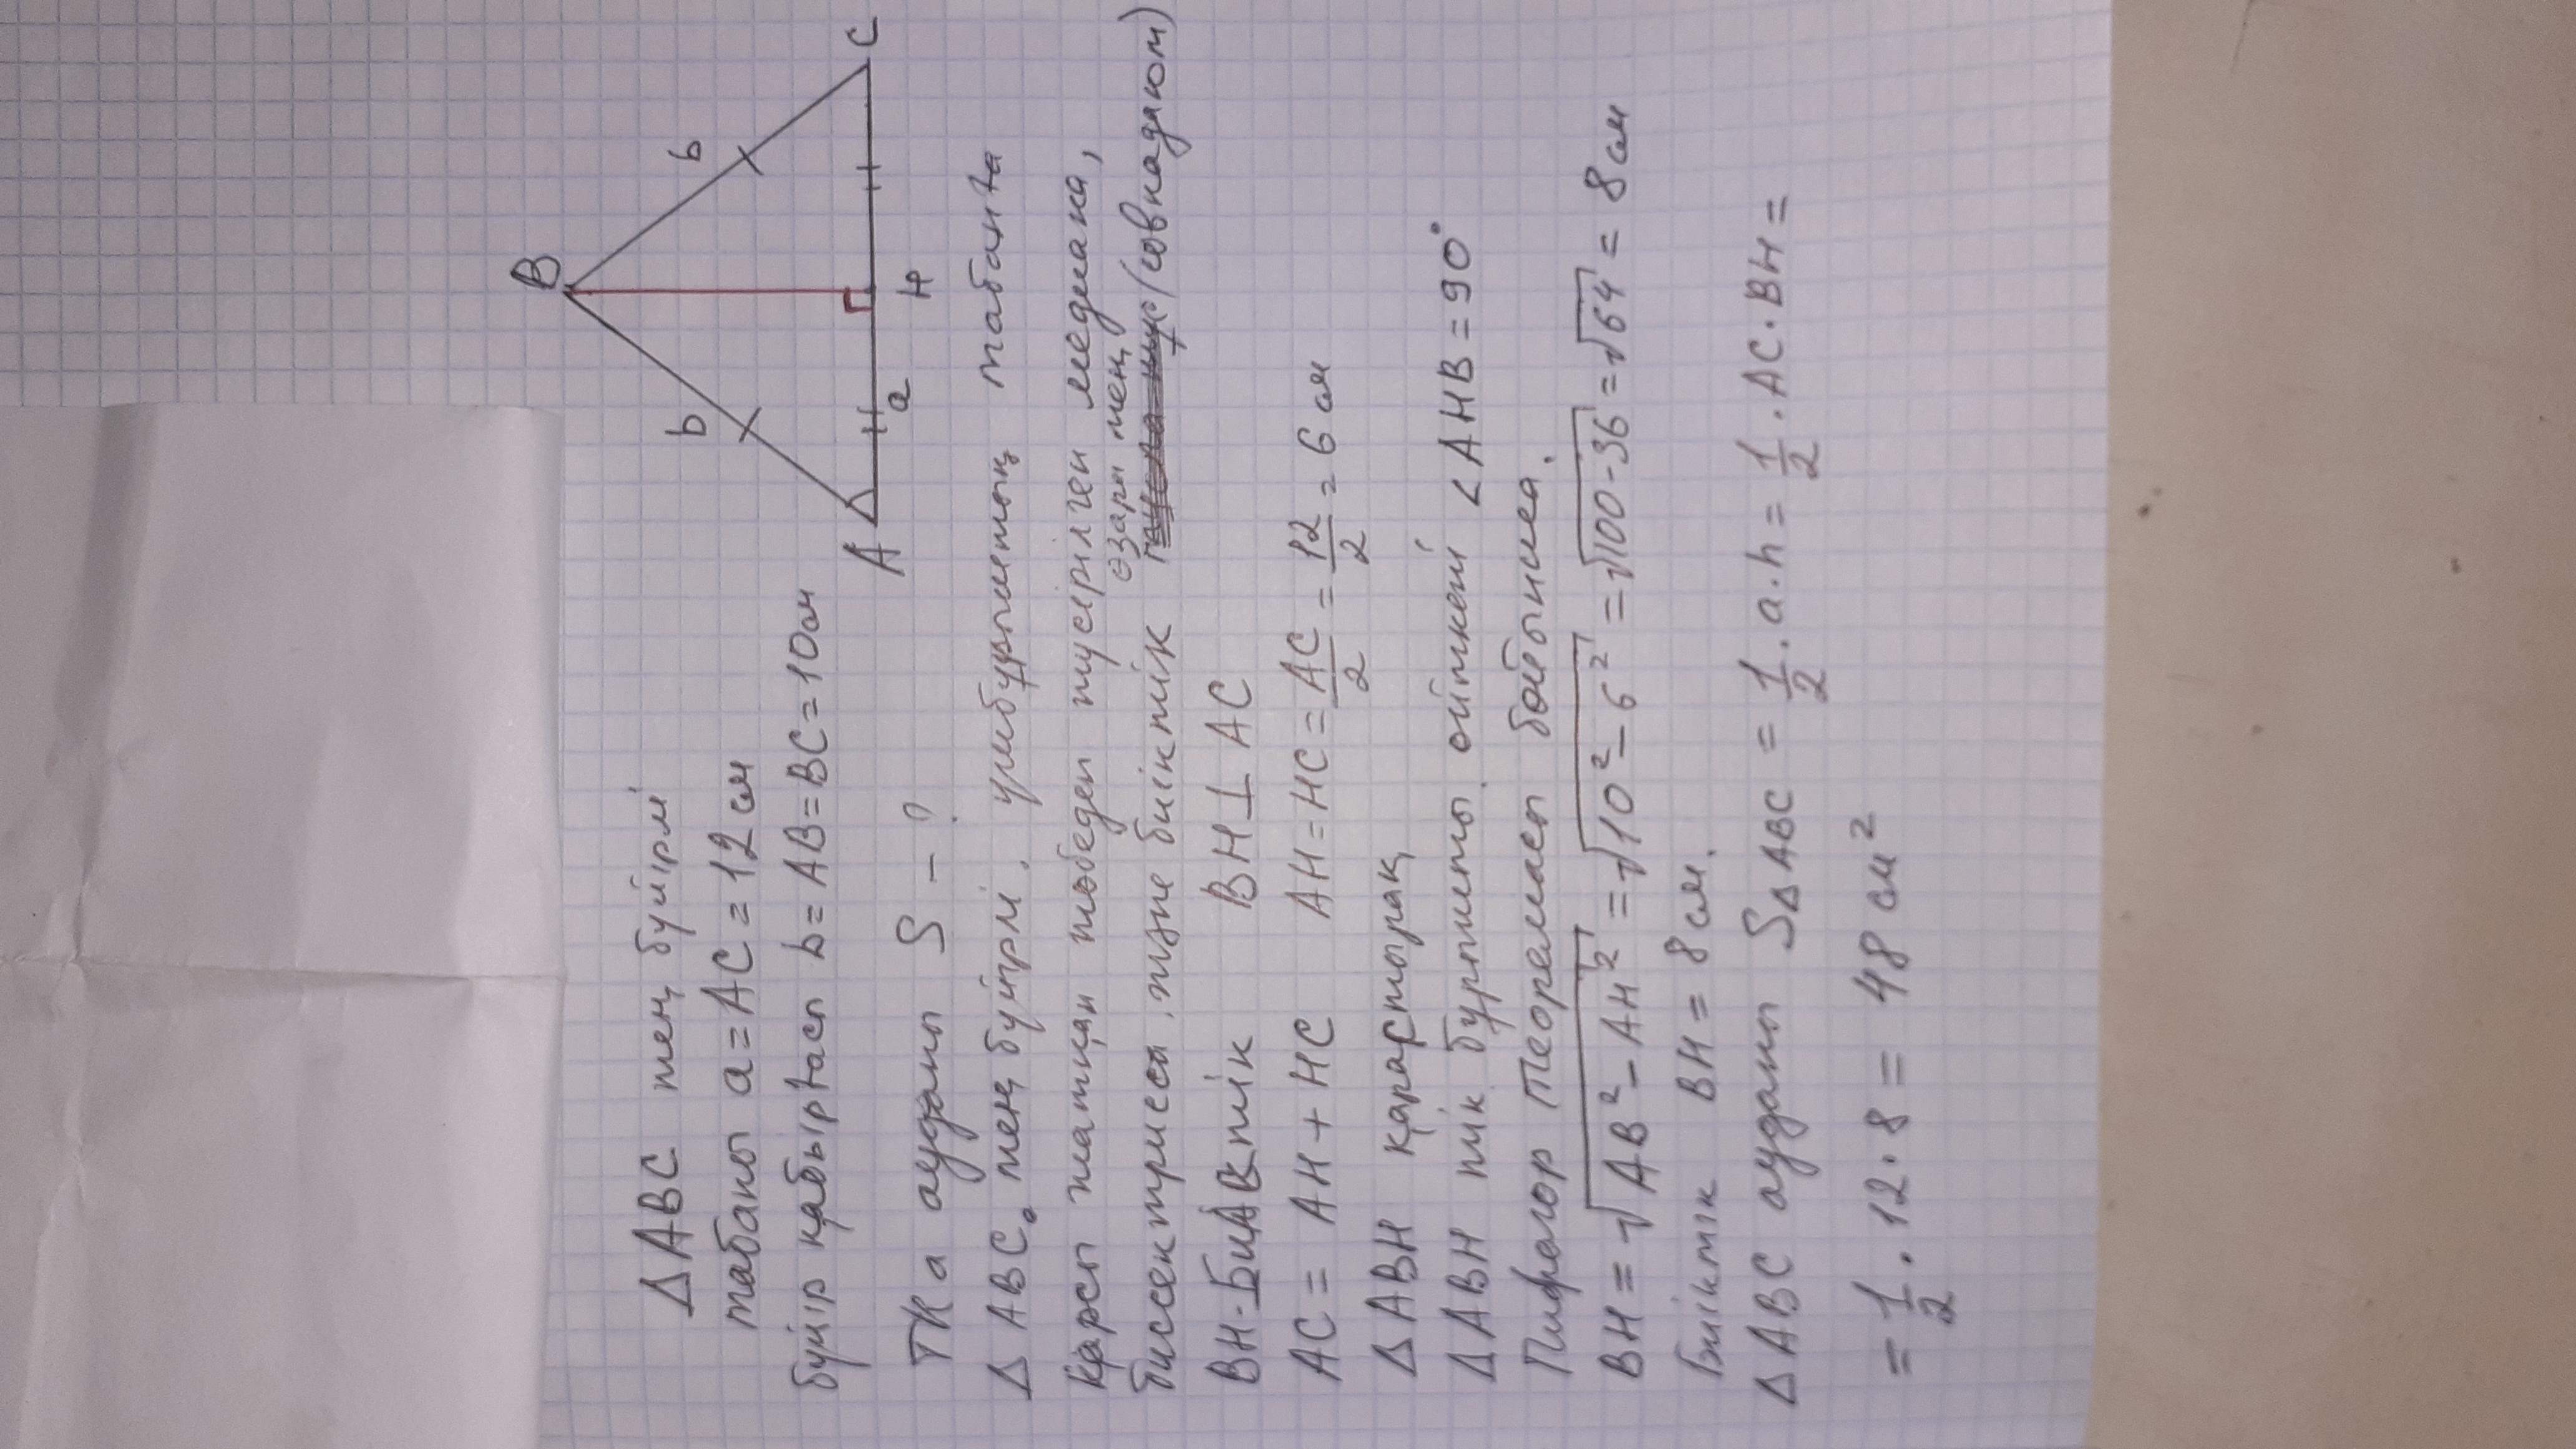 B
b
b
A
a
H
C
Δ ABC тең бүйірлі
табаны a = AC = 12 см
бүйір қабырғасы b = AB = BC = 10 см
ТК а ауданы S - ?
Δ ABC. тең бүйірлі. үшбұрыштың табанға
Қарсы жатқан төбеден түсірілген медиана,
өзары тең
биссектриса, және биіктік (совпадают)
BH - Биіктік BH ⊥ AC
AC = AH + HC AH = HC = AC/2 = 12/2 = 6 см
Δ ABH қарастырақ
Δ ABH тік бұрышты. өйткені <AHB = 90°
Пифагор теоремасы бойынша.
BH = √AB² - AH² = √10² - 6² = √100 - 36 = √64 = 8 см
Биіктік BH = 8 см.
Δ ABC ауданы S Δ ABC = 1/2 · a · h = 1/2 · AC · BH =
= 1/2 · 12 · 8 = 48 см²